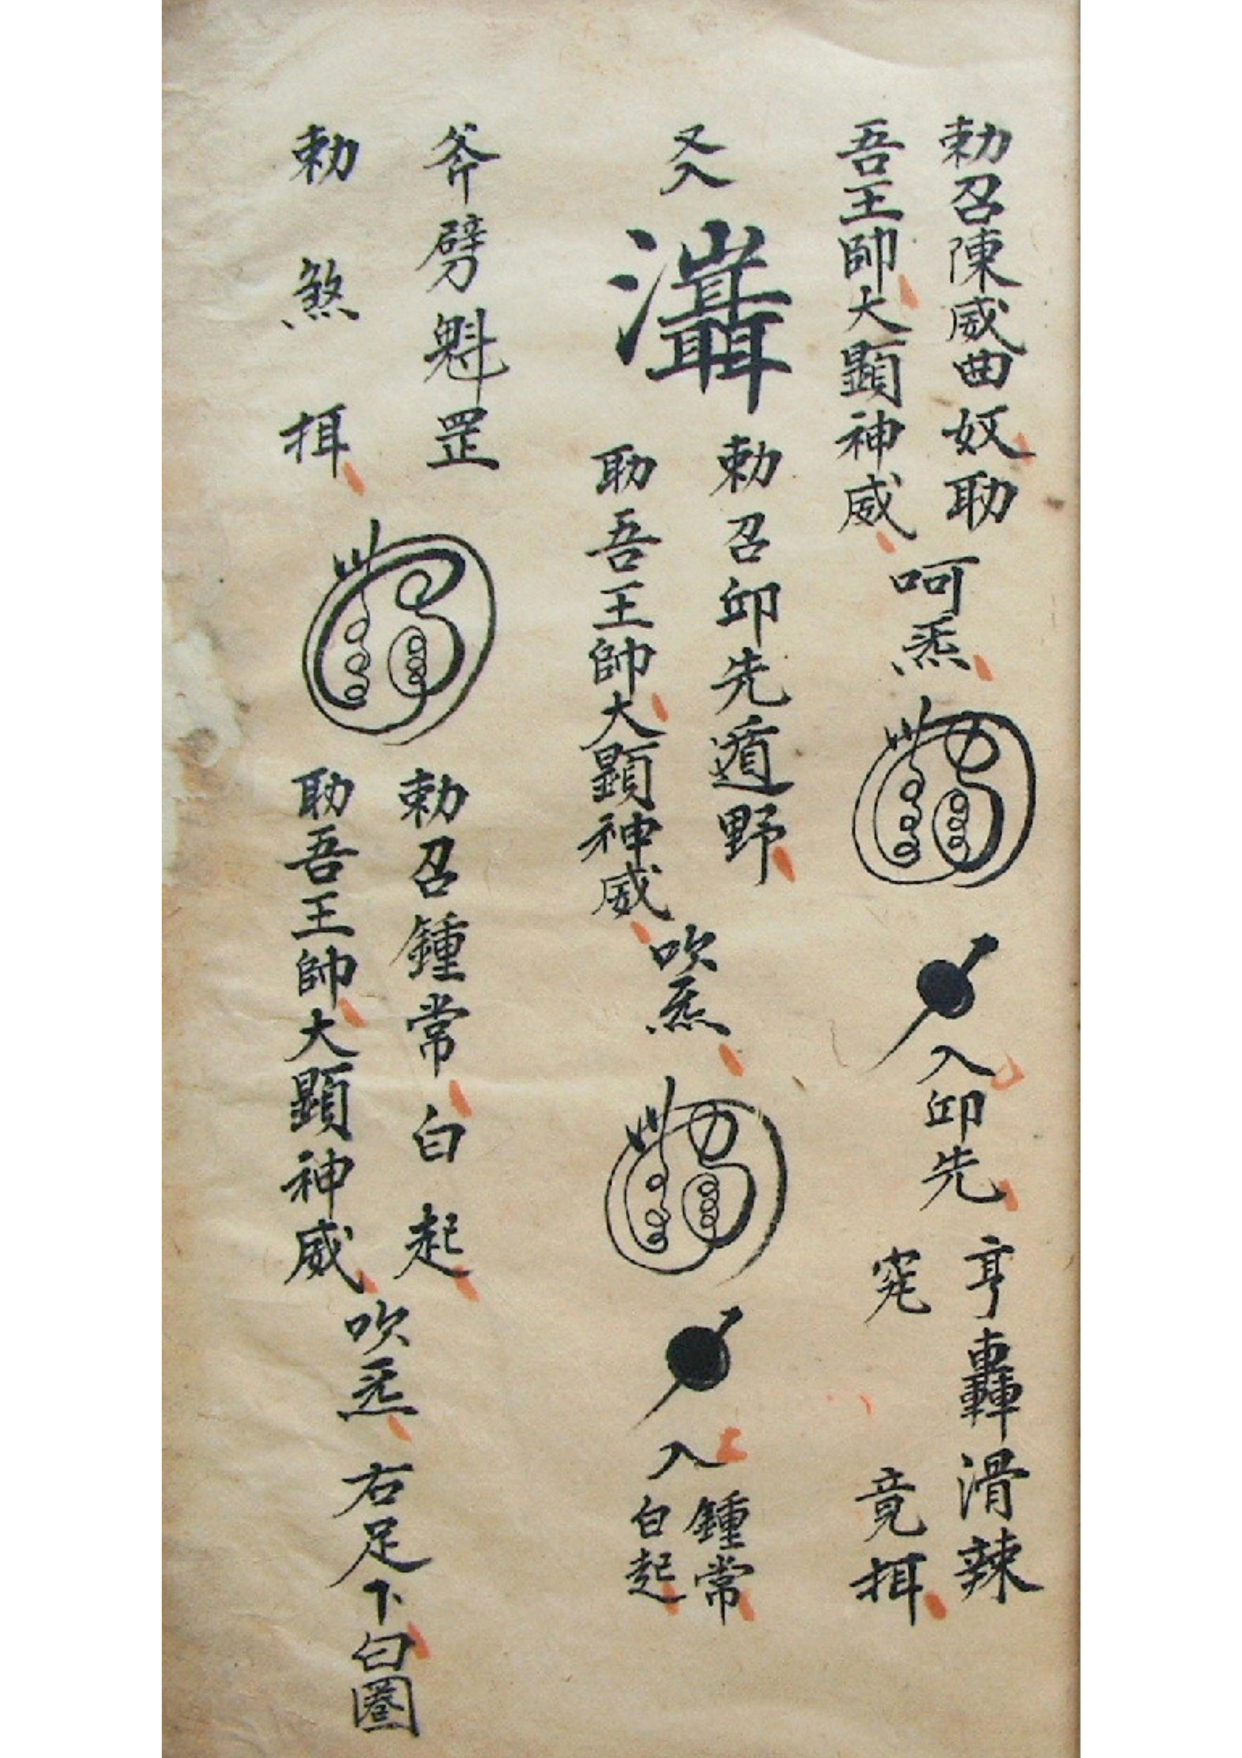 勅召陳威曲奴助
吾王帥大顯神威
呵炁
入邱先
亨轟滑辣
窀竟挕
又入
勅召邱先遁野
助吾王帥大顯神威
吹炁
入鍾常
白起
斧劈魁罡
勅煞挕
勅召鍾常白起
助吾王帥大顯神威
吹炁
右足下白圈